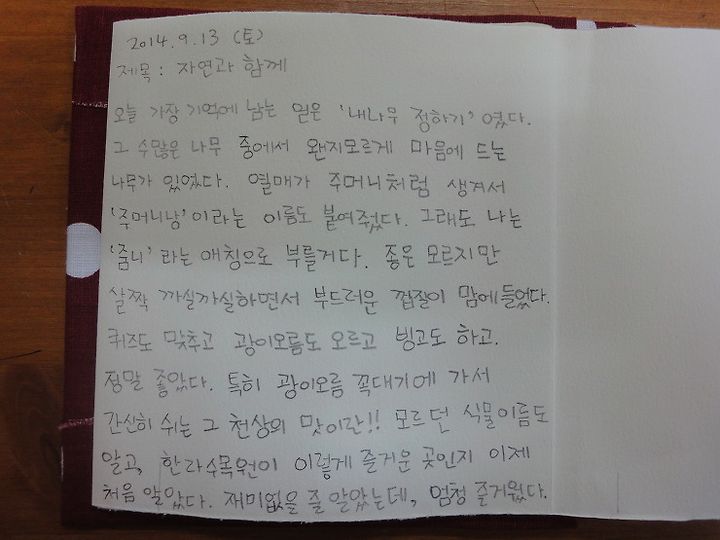 2014.9.13 (토)
제목 : 자연과 함께
오늘 가장 기억에 남는 일은 '내나무 정하기' 였다.
그 수많은 나무 중에서 왠지모르게 마음에 드는
나무가 있었다. 열매가 주머니처럼 생겨서
'주머니낭'이라는 이름도 붙여줬다. 그래도 나는
'줌니' 라는 애칭으로 부를거다. 종은 모르지만
살짝 까실까실하면서 부드러운 껍질이 맘에들었다.
퀴즈도 맞추고 광이오름도 오르고 빙고도 하고.
정말 좋았다. 특히 광이오름 꼭대기에 가서
간신히 쉬는 그 천상의 맛이란!! 모르던 식물이름도
알고, 한라수목원이 이렇게 즐거운 곳인지 이제
처음 알았다. 재미없을 줄 알았는데, 엄청 즐거웠다.